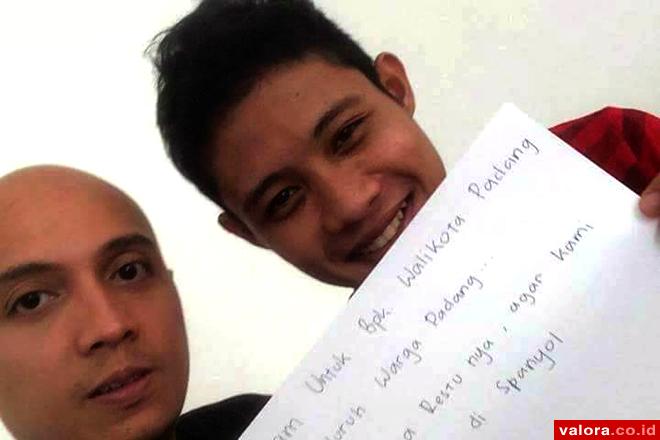 Untuk Bpk. Walikota Padang
Warga Padang...
Restu nya, agar kami
di Spanyol
valora.co.id